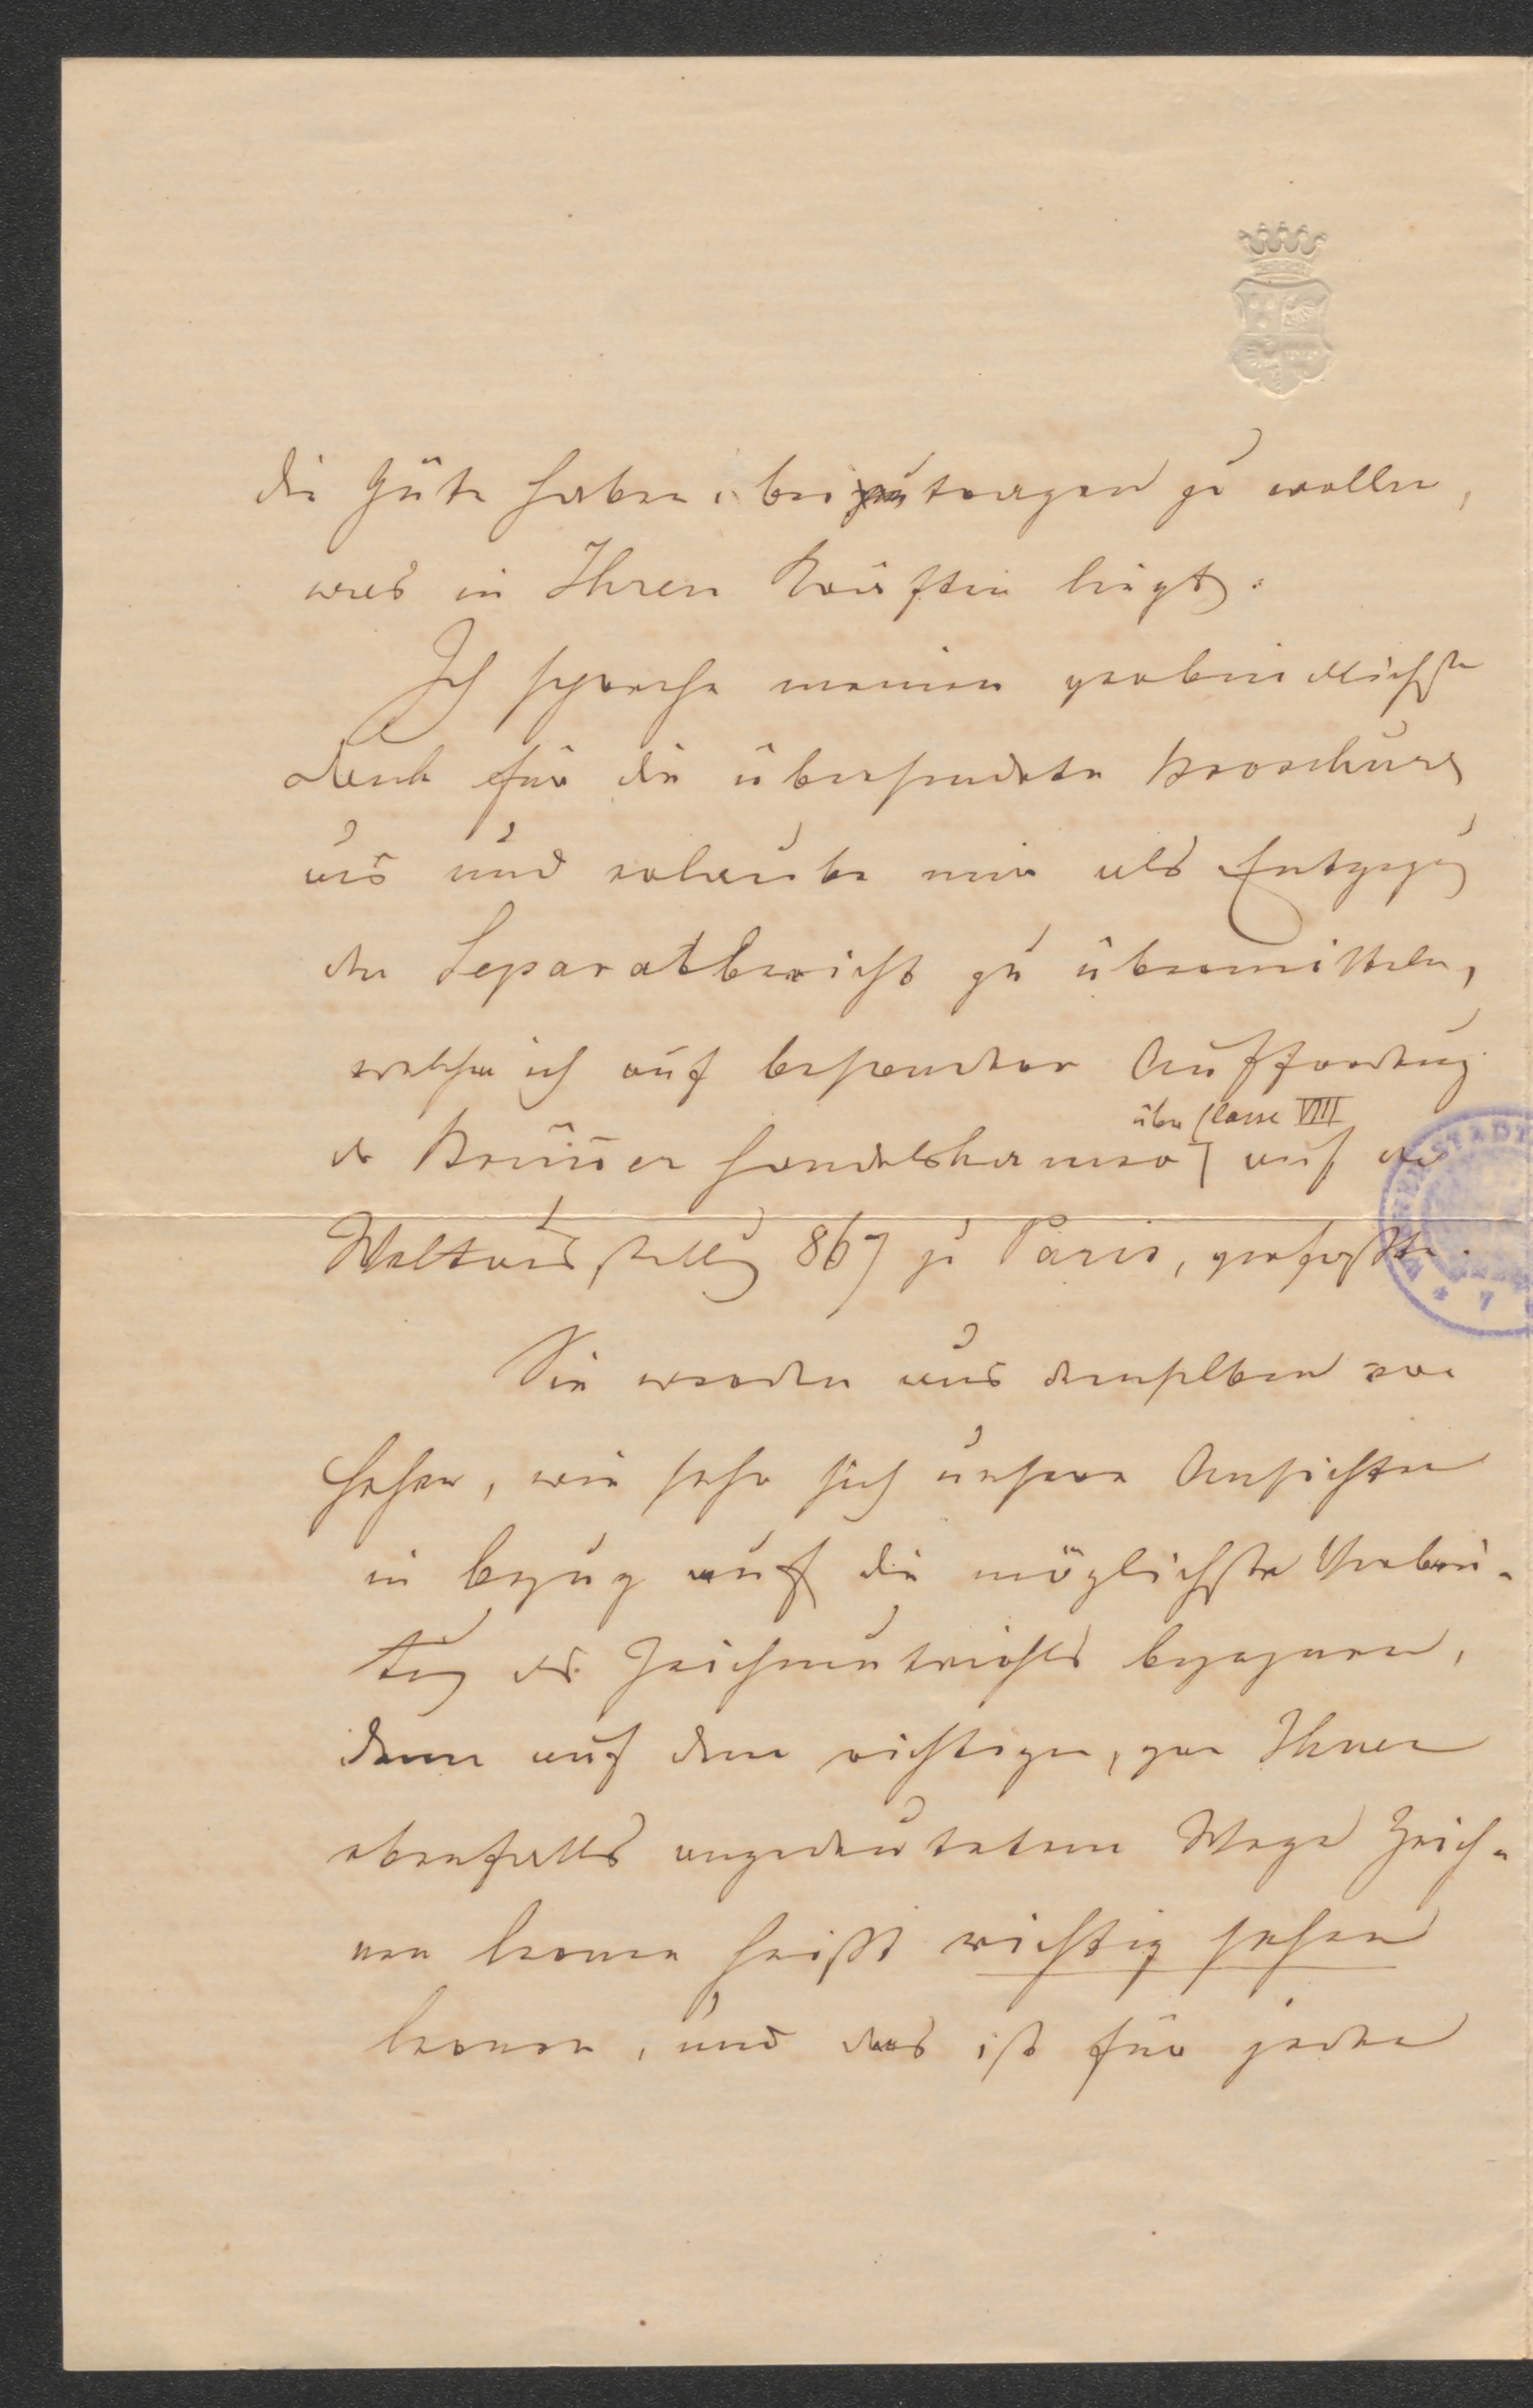 die Güte haben, beizutragen zu wollen,
was in Ihren Kräften liegt.
Ich spreche meinen verbindlichste
Dank für die übersendete Broschüre
aus und erlaube mir als Entgegng
den Separatbericht zu übermitteln,
welchen ich auf besonderer Aufforderung
über Classe VIII
der Brünner Handelskammer auf der
Weltausstellg 867 zu Paris, verfaßte.
Sie werden aus demselben er-
sehen, wie sehr sich unsere Ansichten
in bezug auf die möglichste Verbrei-
tung des Zeichnuntrichts begegnen,
denn auf dem richtigen, von Ihnen
ebenfalls angedeutetem Wege Zeich-
nen lernen heißt richtig sehen
lernen, und das ist für jeden